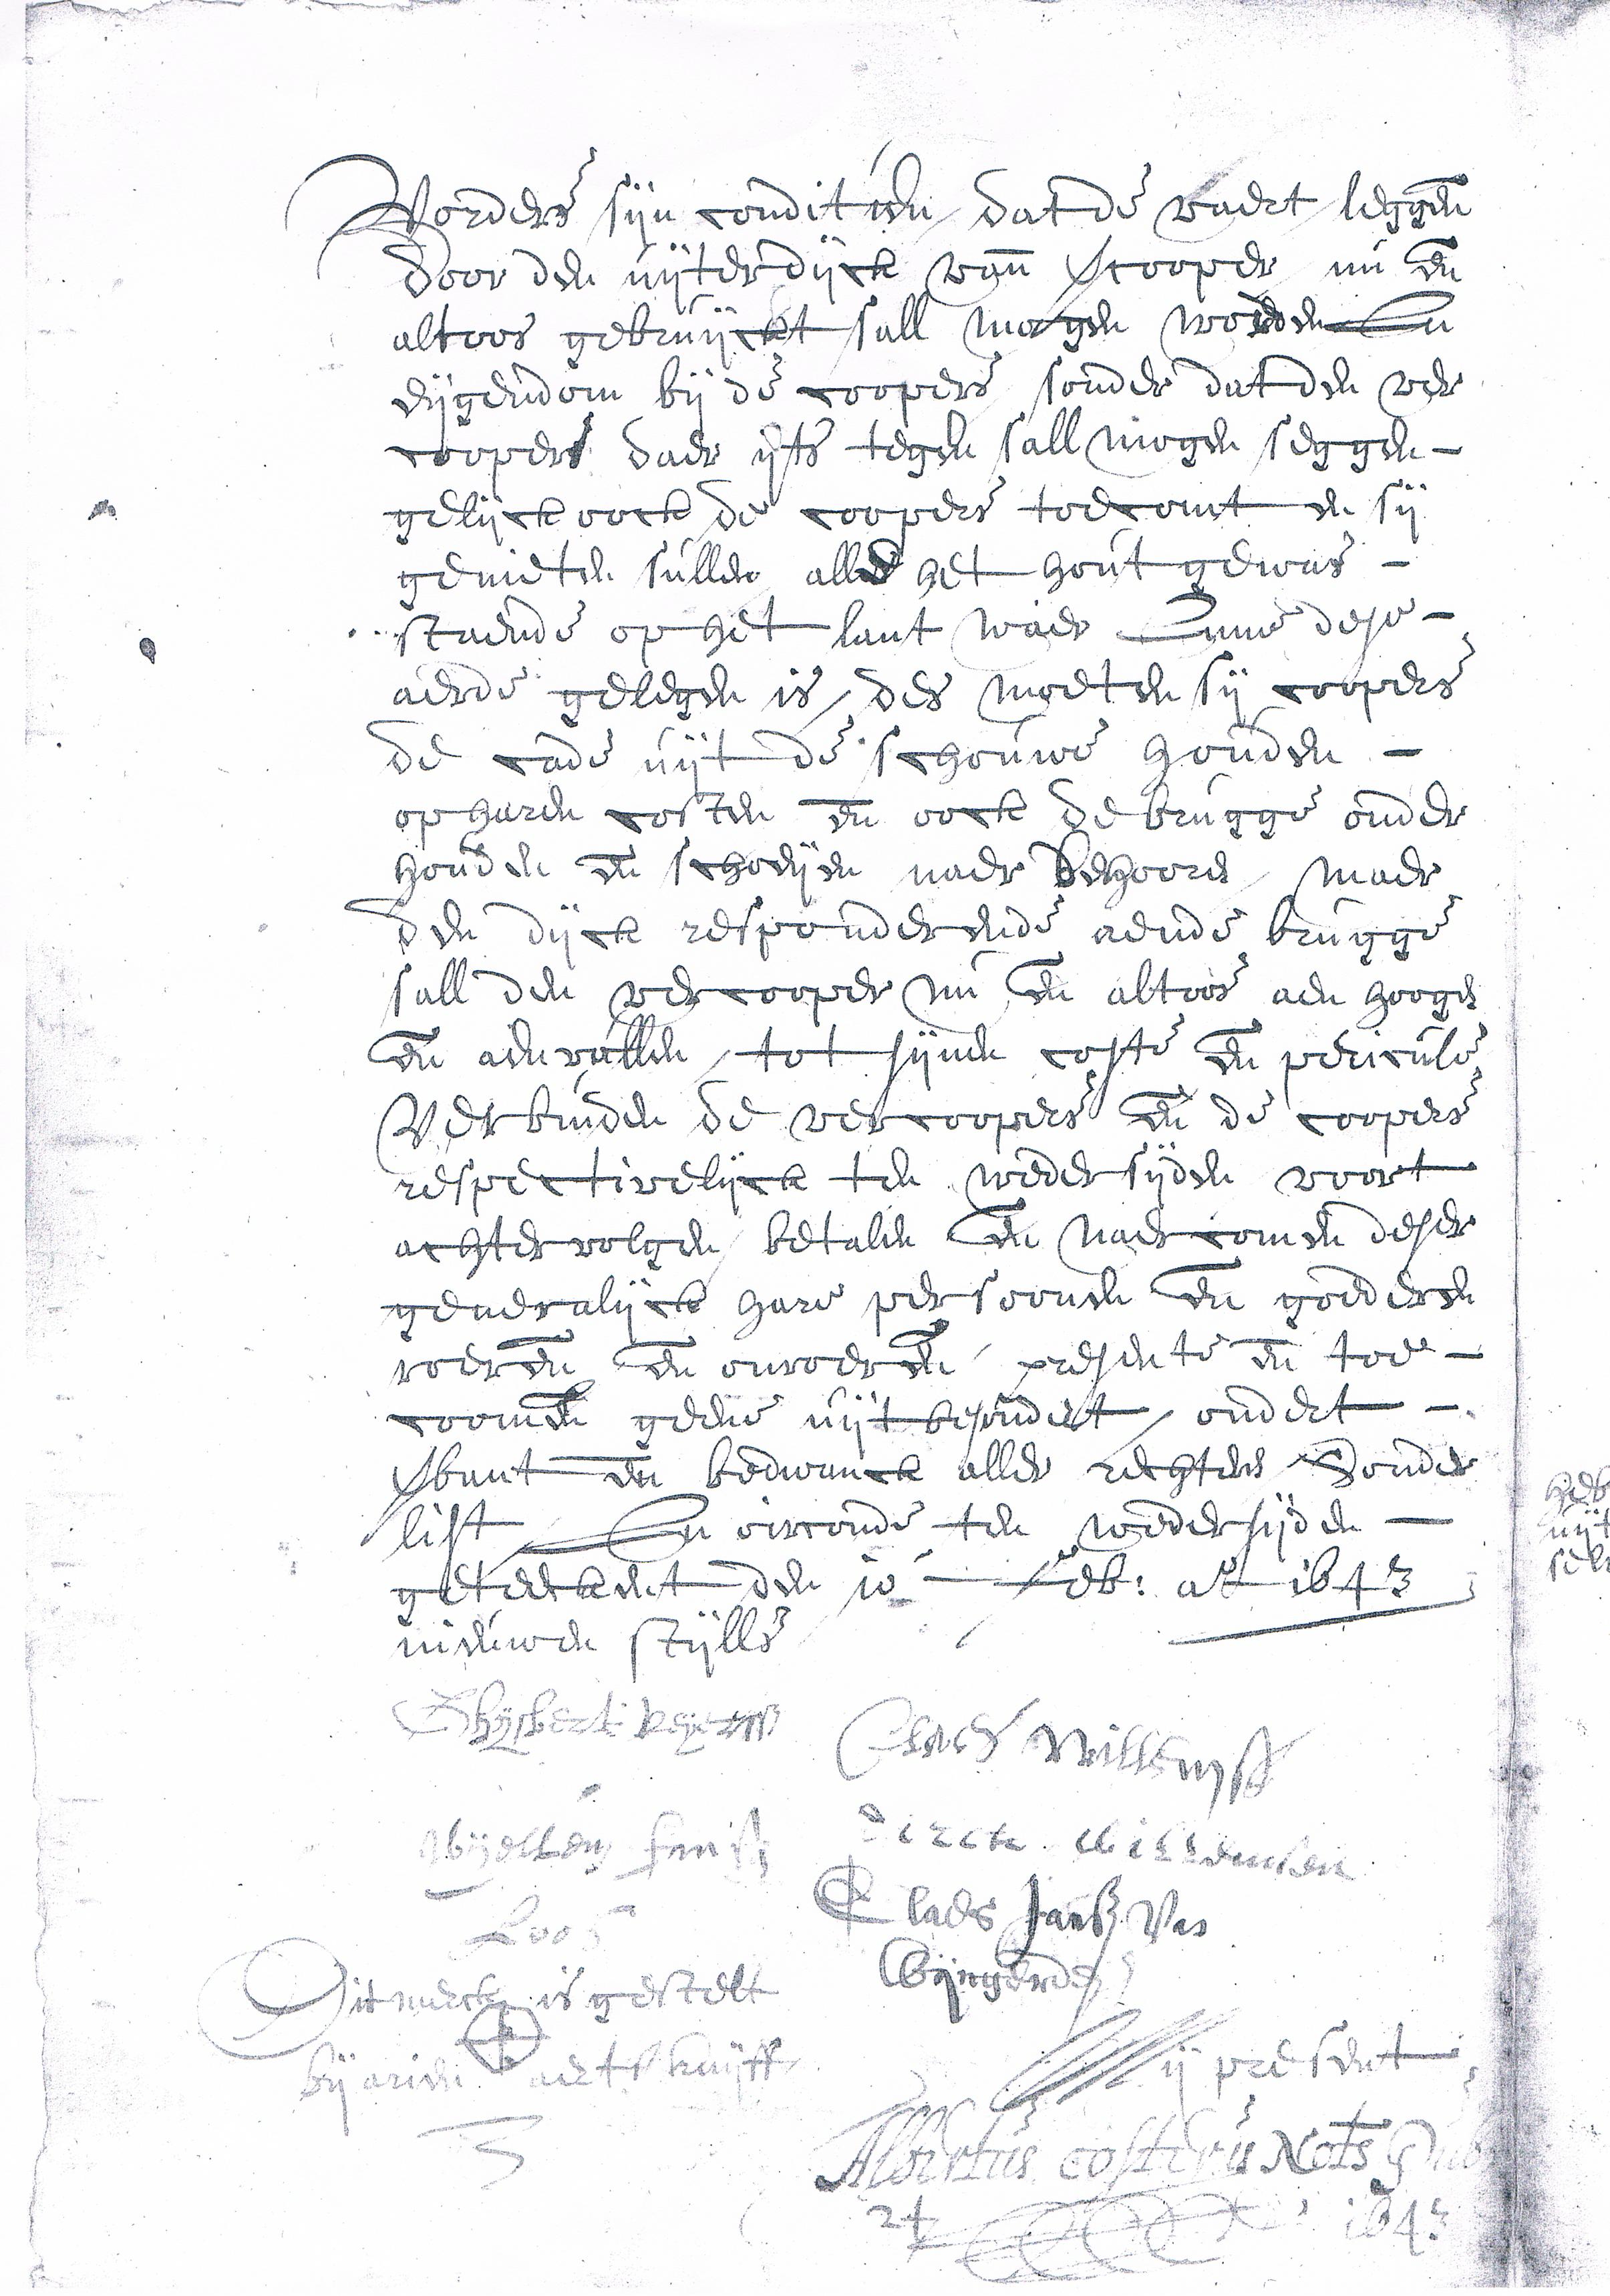 Vorders sijn conditien, dat de vaert leggen
door den uijterdijck van scooper nu en
altoos gebruijckt sall mogen worden En
eijgendom bij de coopers sonder dat den ver
coopers daer ijts tegen sall mogen seggen -
gelijck oock de coopers toecomt en sij
genieten sullen alle het hout gewas -
staende op het lant waer Inne dese -
aerde gelegen is, des moeten sij coopers
de cade uijt de schouwe houden -
op haren costen en oock de brugge onder
houden en schoeijen naer behooren, maer
den dijck responderende aende brugge
sall den vercooper nu en altoos aen hoogen
en aenvullen, tot sijnen coste en periculo,
Verbinden de vercoopers en de coopers
respectivelijck ten wedersijden voort
achtervolgen, betalen en naercomen deser
generalijck hare persoonen en goederen
roeren en onroeren, presente en toe -
coomen geene uijtbesondert, ondert -
sbant en bedwanck aller rechteren Sonder
list En oirconde ten wedersijden -
geteekent den 10 - feb: ao 1643
nieuwen stijlls
Ghijsbert
Claes Willemss
Dirck Willemsen
Claes Janss Van
Wijngerden
Dit merck is gestelt
bij arien aerts kuijff
Mij present
Albertus Costerus Nots Pub
24 1643